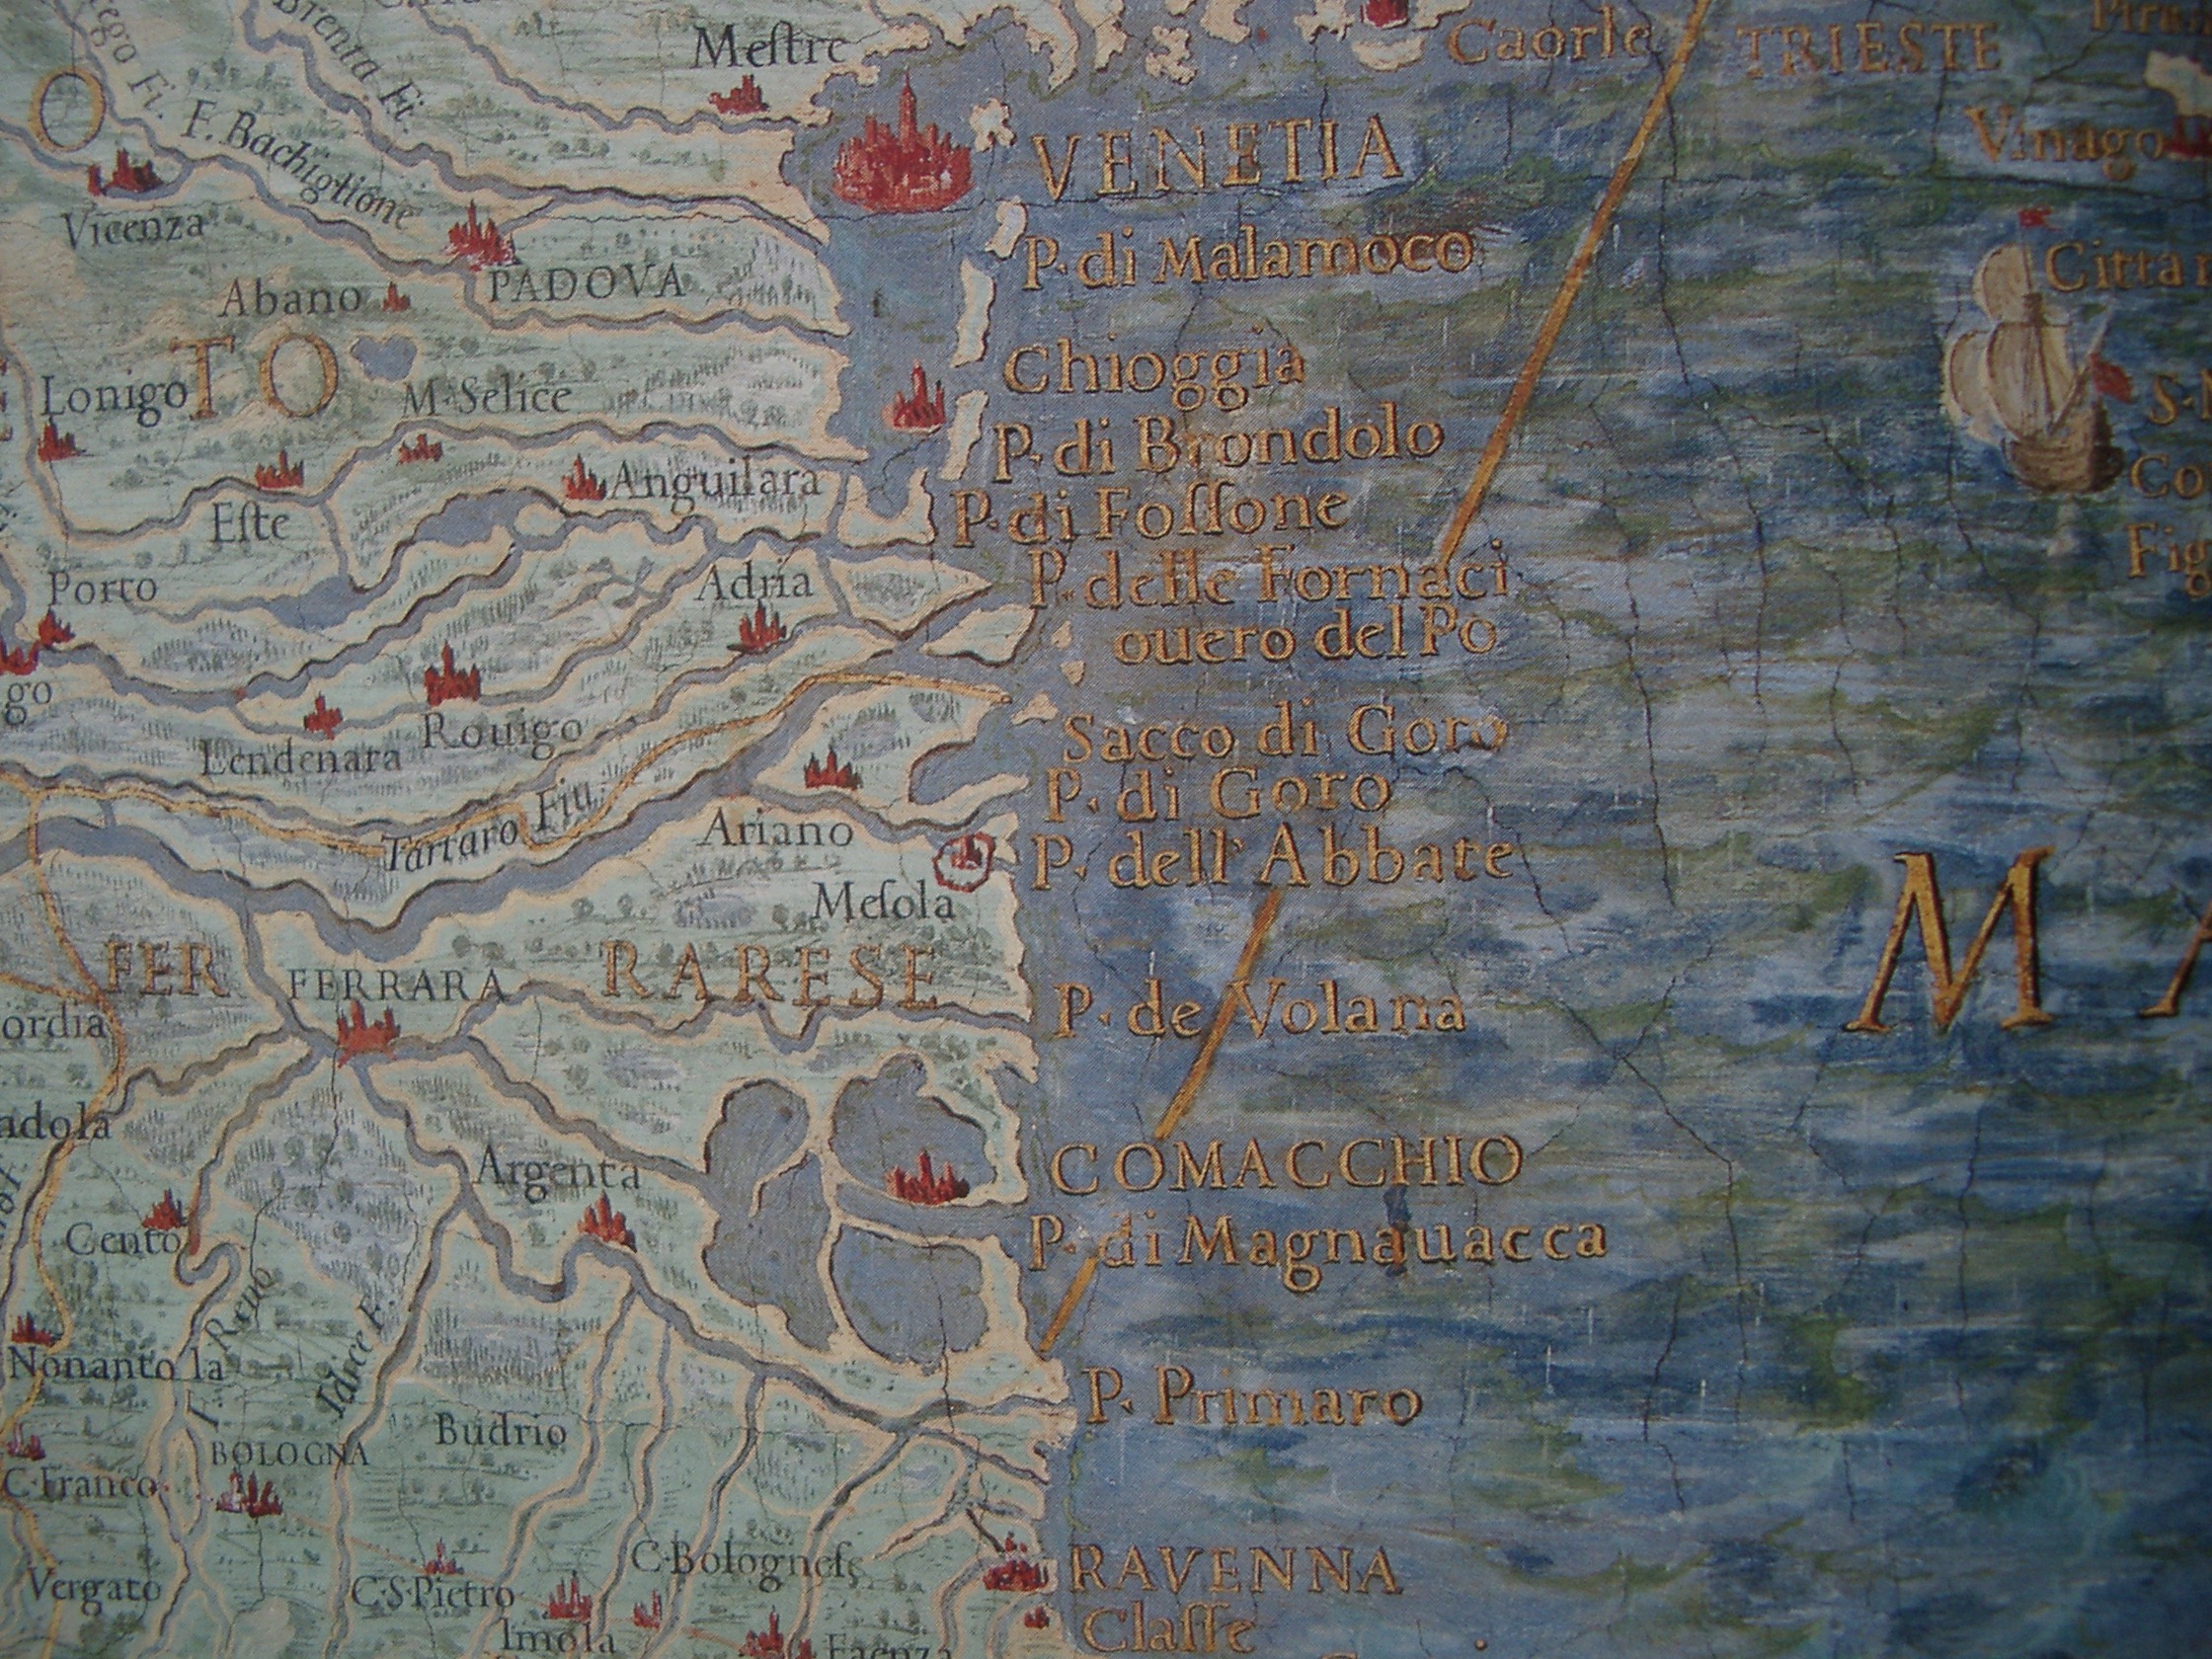 Brenta Fi.
Meſtre
Caorle
TRIESTE
O
F. Bachiglione
VENETIA
Vinago
Vicenza
PADOVA
P. di Malamoco
Citta
Abano
TO
Chioggia
Lonigo
M. Selice
P. di Brondolo
Anguilara
P. di Foſſone
Eſte
Porto
Adria
P. delle Fornaci
ouero del Po
Rouigo
Lendenara
Sacco di Goro
P. di Goro
Tartaro Fiu.
Ariano
P. dell' Abbate
Meſola
M
FER RARESE
FERRARA
P. de Volana
COMACCHIO
Argenta
P. di Magnauacca
Cento
F. Reno
Idice F.
Nonantola
P. Primaro
Budrio
BOLOGNA
C. Franco
C. Bologneſe
RAVENNA
Vergato
C. S. Pietro
Claſſe
Imola
Faenza